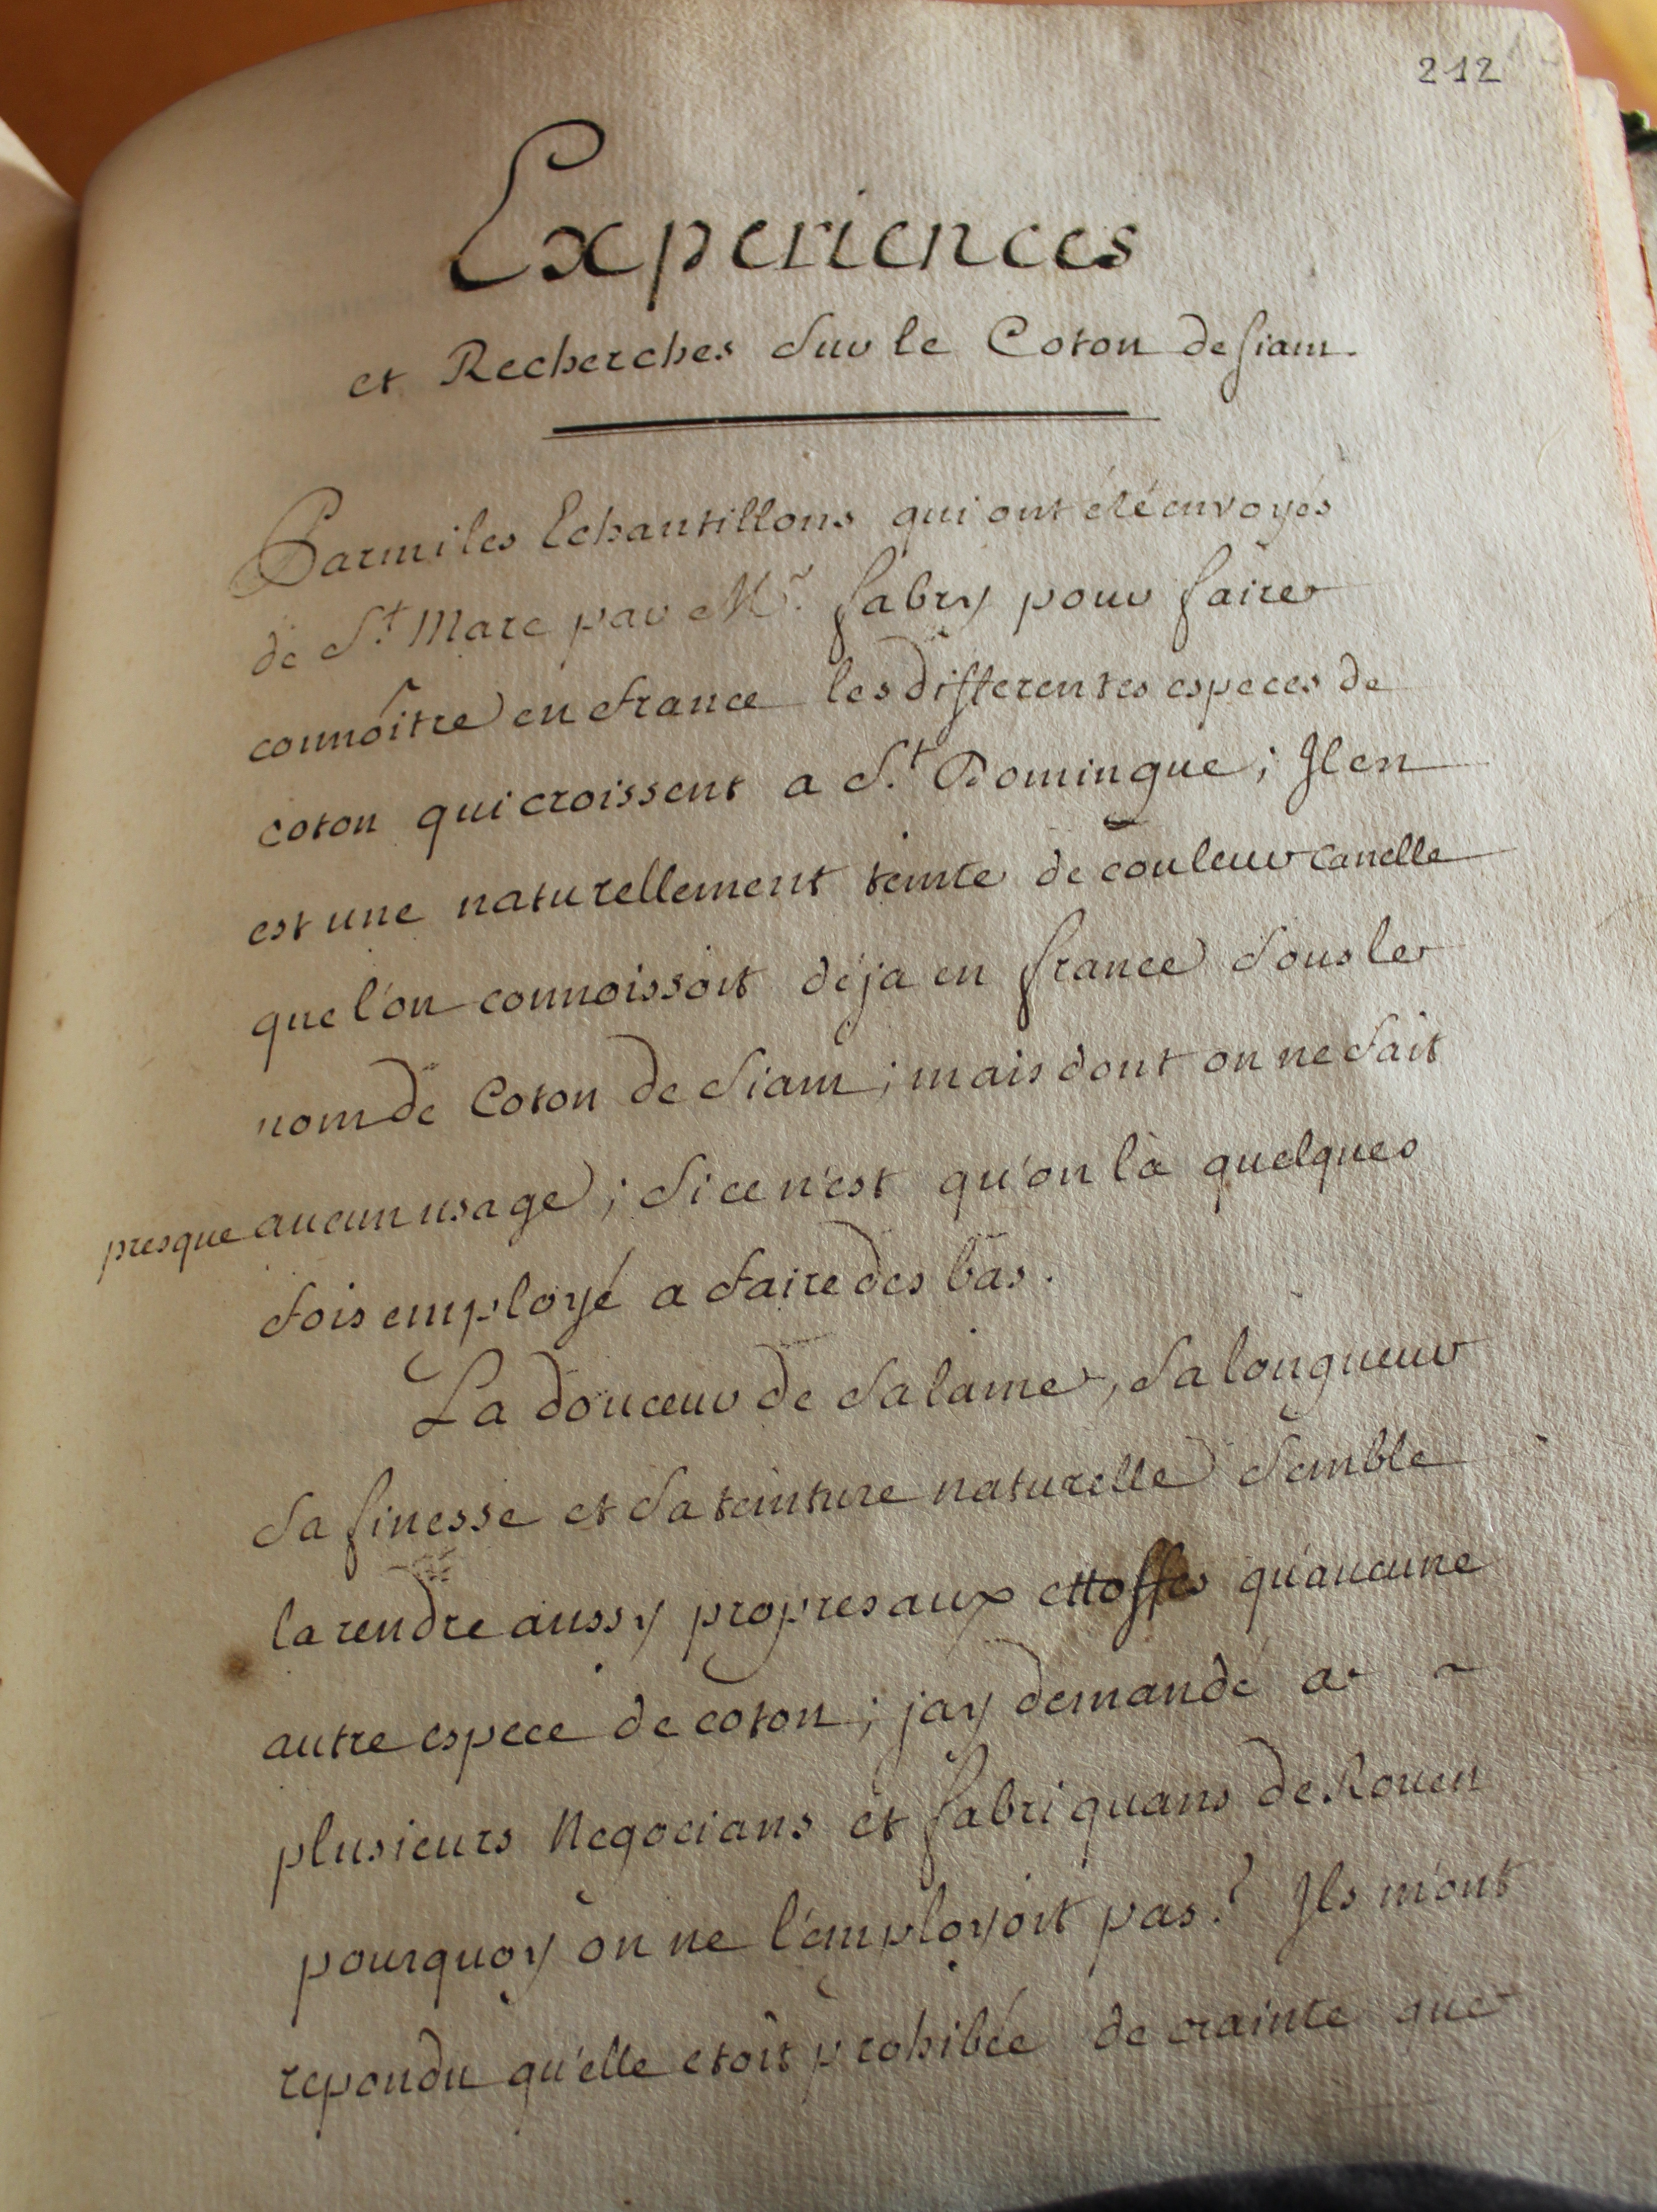 212
Experiences
et Recherches sur le Coton de siam.
Parmi les Echantillons qui ont été envoyés
de St. Marc par Mr. fabry pour faire
connoître en france les differentes especes de
coton qui croissent a St. Domingue; Il en
est une naturellement teinte de couleur canelle
que l'on connoissoit déja en france sous le
nom de Coton de siam; mais dont on ne fait
presque aucun usage; si ce n'est qu'on la quelques
fois employé a faire des bas.
La douceur de sa laine, sa longueur
sa finesse et sa teinture naturelle semble
la rendre aussy propres aux ettoffes qu'aucune
autre espece de coton; jay demandé a
plusieurs Negocians et fabriquans de Rouen
pourquoy on ne l'employoit pas? Ils m'ont
repondu qu'elle etoit prohibée de crainte que